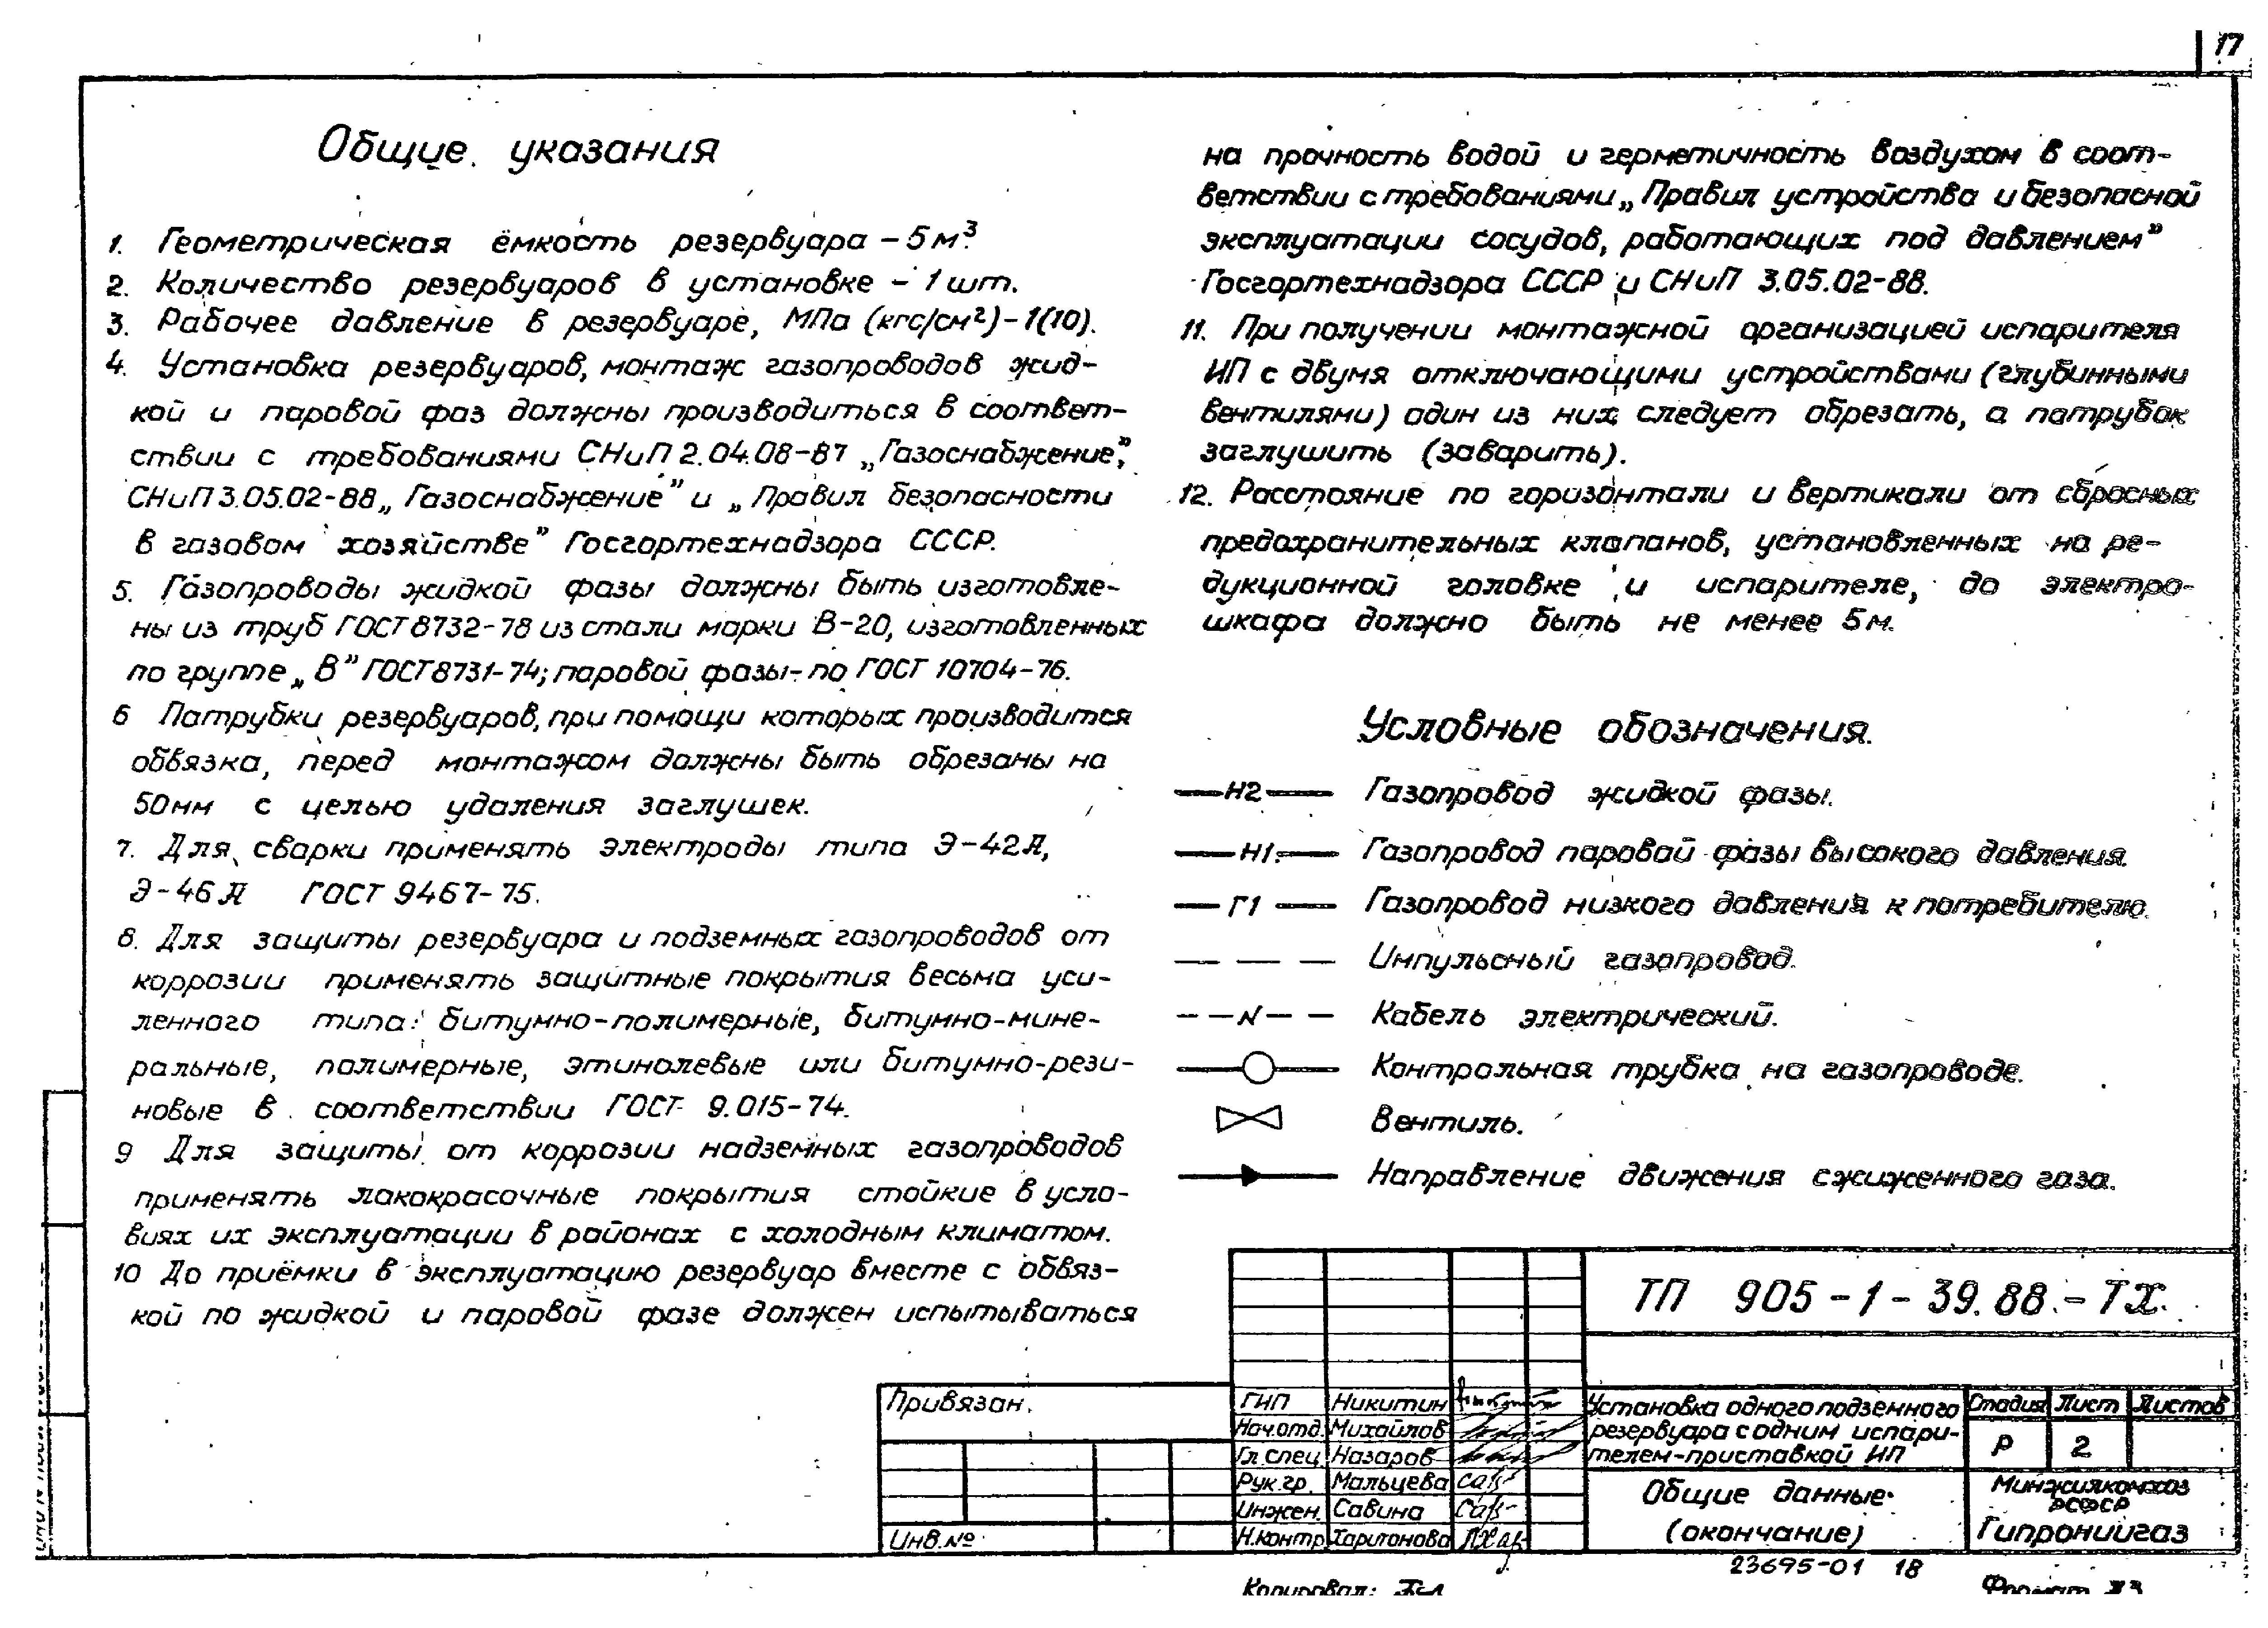 17
Общие указания
1. Геометрическая ёмкость резервуара – 5 м³
2. Количество резервуаров в установке – 1 шт.
3. Рабочее давление в резервуаре, МПа (кгс/см²) – 1(10).
4. Установка резервуаров, монтаж газопроводов жид-
кой и паровой фаз должны производиться в соответ-
ствии с требованиями СНиП 2.04.08-87 „Газоснабжение",
СНиП 3.05.02-88 „Газоснабжение" и „Правил безопасности
в газовом хозяйстве" Госгортехнадзора СССР.
5. Газопроводы жидкой фазы должны быть изготовле-
ны из труб ГОСТ 8732-78 из стали марки В-20, изготовленных
по группе „В" ГОСТ 8731-74; паровой фазы – по ГОСТ 10704-76.
6 Патрубки резервуаров, при помощи которых производится
обвязка, перед монтажом должны быть обрезаны на
50мм с целью удаления заглушек.
7. Для сварки применять электроды типа Э-42А,
Э-46А ГОСТ 9467-75.
8. Для защиты резервуара и подземных газопроводов от
коррозии применять защитные покрытия весьма уси-
ленного типа: битумно-полимерные, битумно-мине-
ральные, полимерные, этинолевые или битумно-рези-
новые в соответствии ГОСТ 9.015-74.
9 Для защиты от коррозии надземных газопроводов
применять лакокрасочные покрытия стойкие в усло-
виях их эксплуатации в районах с холодным климатом.
10 До приёмки в эксплуатацию резервуар вместе с обвяз-
кой по жидкой и паровой фазе должен испытываться
на прочность водой и герметичность воздухом в соот-
ветствии с требованиями „Правил устройства и безопасной
эксплуатации сосудов, работающих под давлением"
Госгортехнадзора СССР и СНиП 3.05.02-88.
11. При получении монтажной организацией испарителя
ИП с двумя отключающими устройствами (глубинными
вентилями) один из них следует обрезать, а патрубок
заглушить (заварить).
12. Расстояние по горизонтали и вертикали от сбросных
предохранительных клапанов, установленных на ре-
дукционной головке и испарителе, до электро-
шкафа должно быть не менее 5м.
Условные обозначения.
Н2 Газопровод жидкой фазы.
Н1 Газопровод паровой фазы высокого давления.
Г1 Газопровод низкого давления к потребителю.
Импульсный газопровод.
N Кабель электрический.
Контрольная трубка на газопроводе.
Вентиль.
Направление движения сжиженного газа.
ТП 905-1-39.88.-ТХ.
Привязан.
Инв.№
ГИП Никитин
Нач.отд. Михайлов
Гл.спец. Назаров
Рук.гр. Мальцева
Инжен. Савина
Н.контр Харитонова
Установка одного подземного
резервуара с одним испари-
телем-приставкой ИП
Стадия Лист Листов
Р 2
Общие данные
(окончание)
Минжилкомхоз
РСФСР
Гипрониигаз
23695-01 18
Копировал:
Формат А3